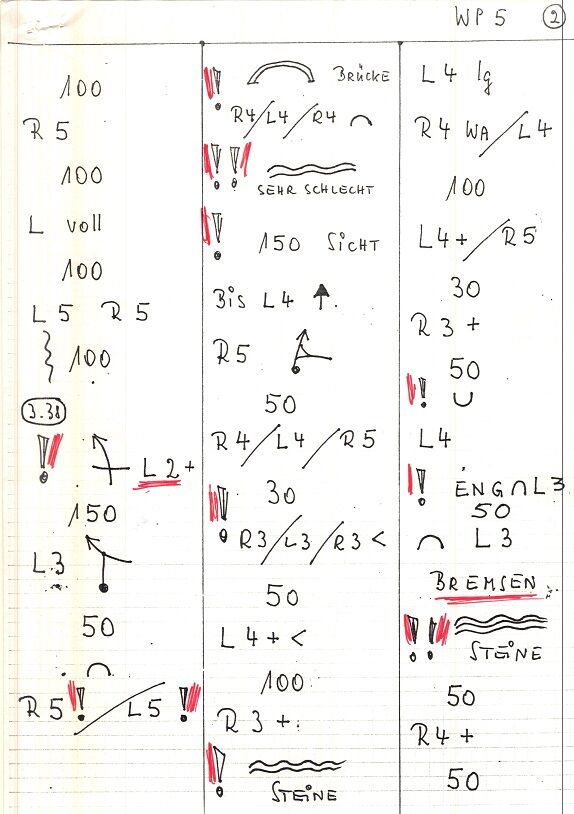 WP 5 2
100
R 5
100
L voll
100
L 5 R 5
100
3.38
! L 2 +
150
L 3
50
R 5 ! / L 5 !
! BRÜCKE
R4 / L4 / R4
!!
SEHR SCHLECHT
! 150 SICHT
BIS L4
R5
50
R4 / L4 / R5
30
! R3 / L3 / R3 <
50
L 4 + <
100
R 3 +
!
STEINE
L 4 lg
R4 WA / L4
100
L4 + / R5
30
R 3 +
50
!
L4
! ENG ∩ L3
50
L 3
BREMSEN
!!
STEINE
50
R4 +
50